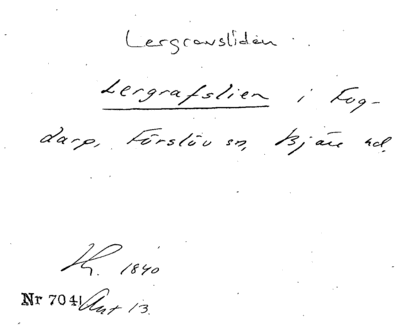 Lergravsliden
Lergrafslien i Fog-
darp, Förslöv sn, Bjäre hd.
1840
Nr 704 Akt 13.